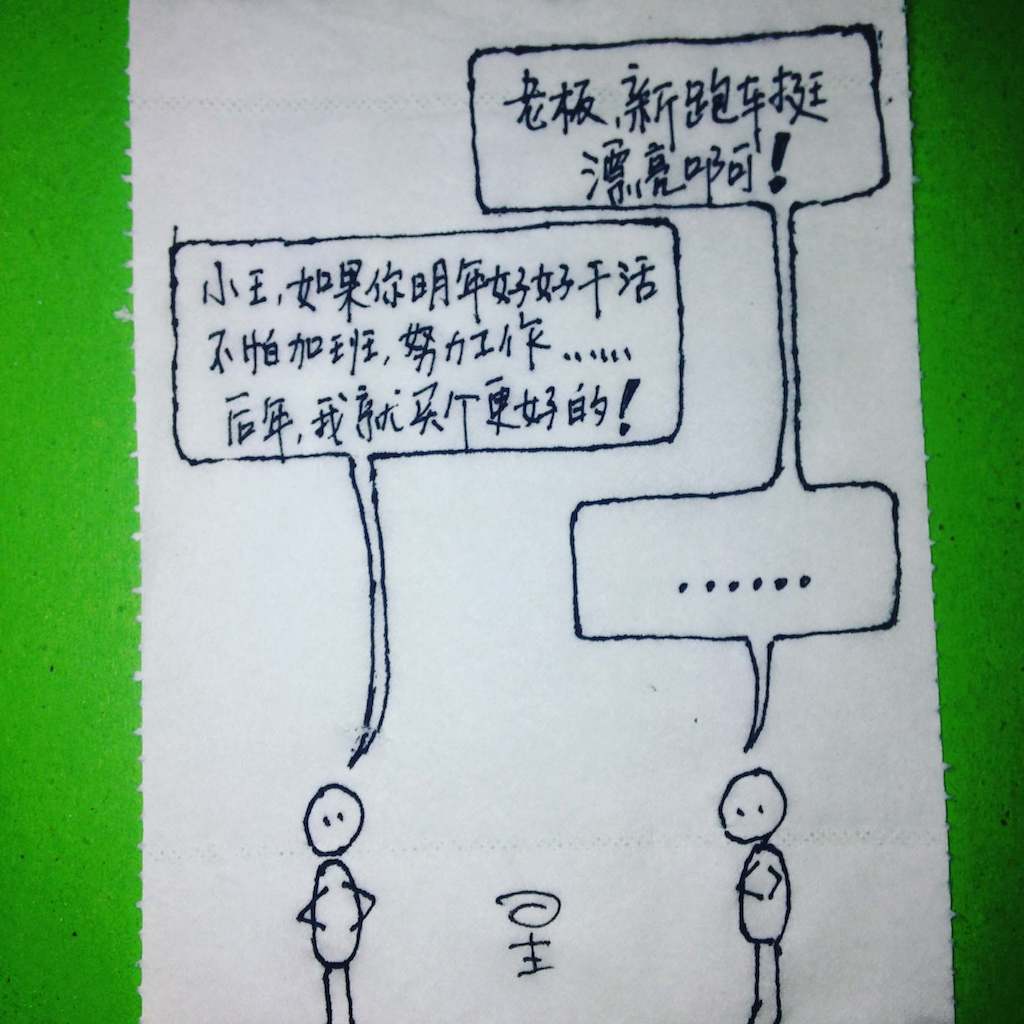 老板,新跑车挺
漂亮啊!
小王,如果你明年好好干活
不怕加班,努力工作……
后年,我就买个更好的!
……